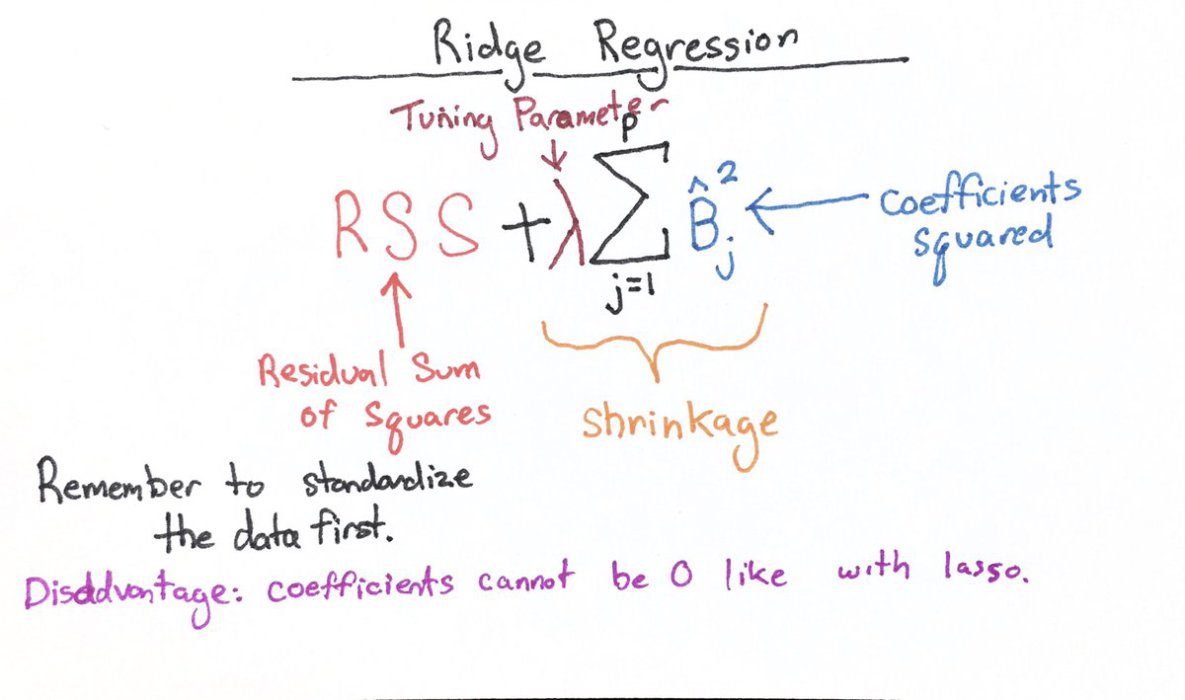 Ridge Regression
Tuning Parameter
RSS + λ ∑ B̂ⱼ²
p
j=1
Coefficients
squared
Residual Sum
of Squares
Shrinkage
Remember to standardize
the data first.
Disddvantage: coefficients cannot be 0 like with lasso.